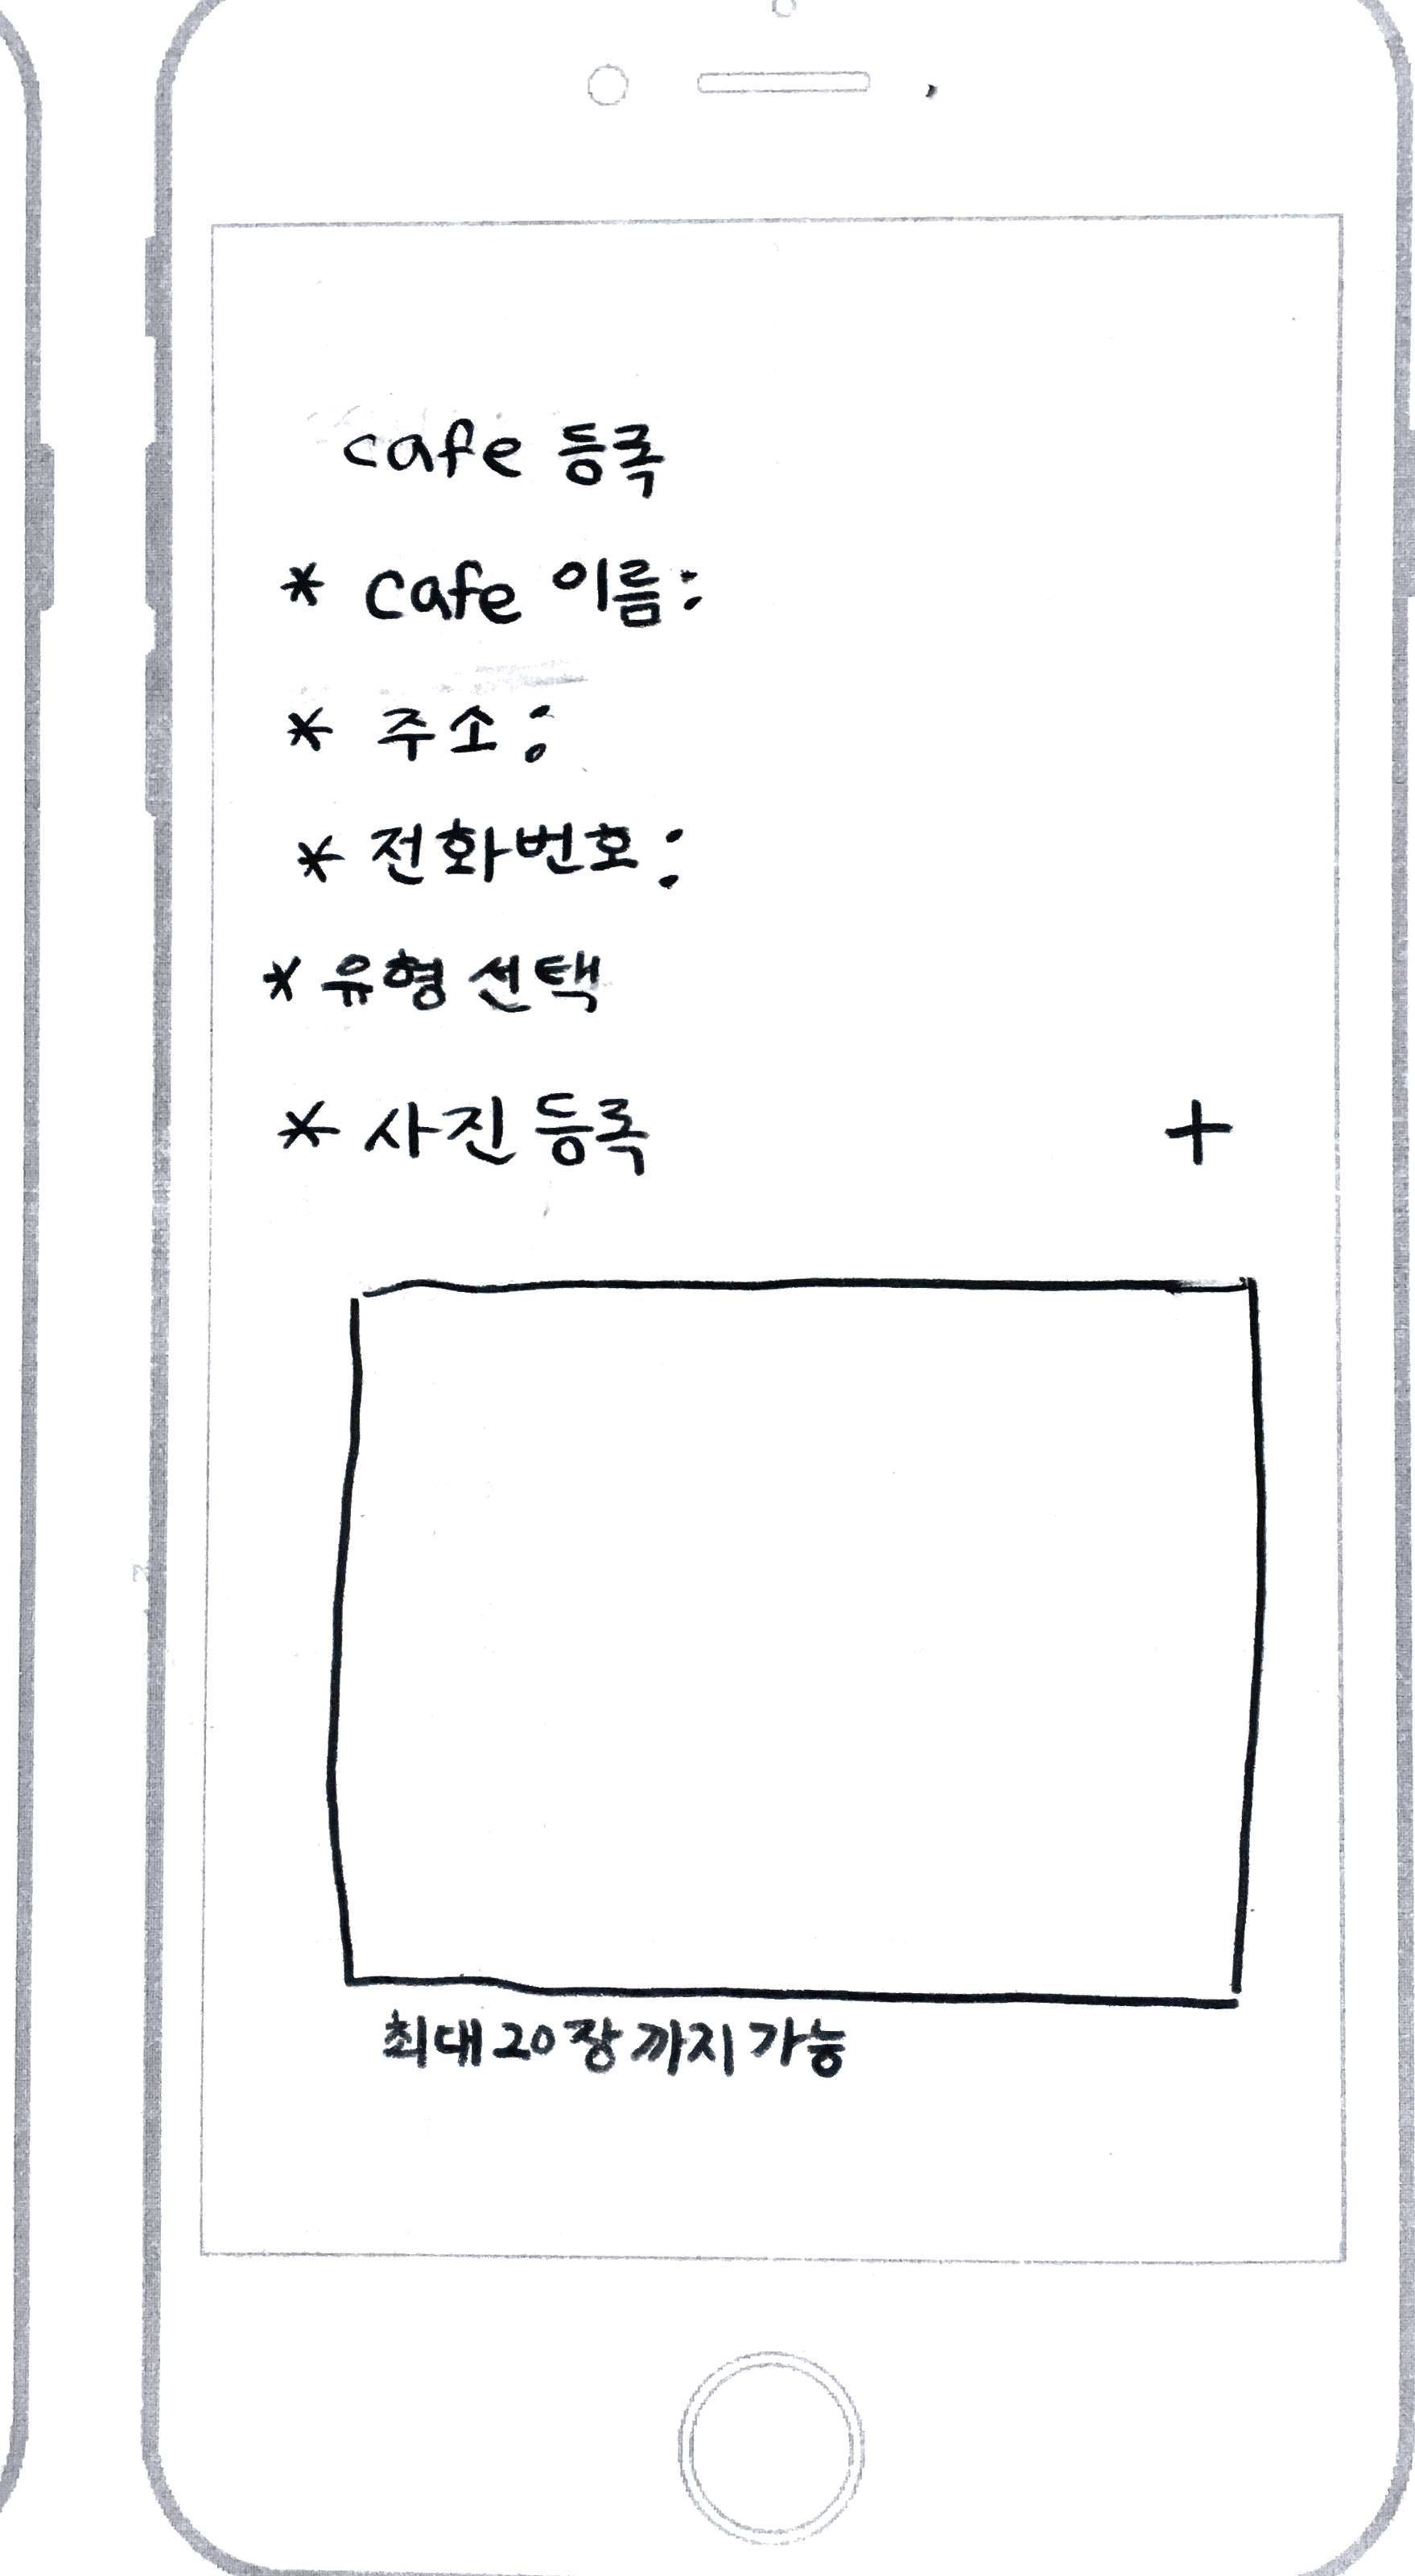 cafe 등록
* cafe 이름:
* 주소:
* 전화번호:
* 유형 선택
* 사진 등록 +
최대 20장 까지 가능